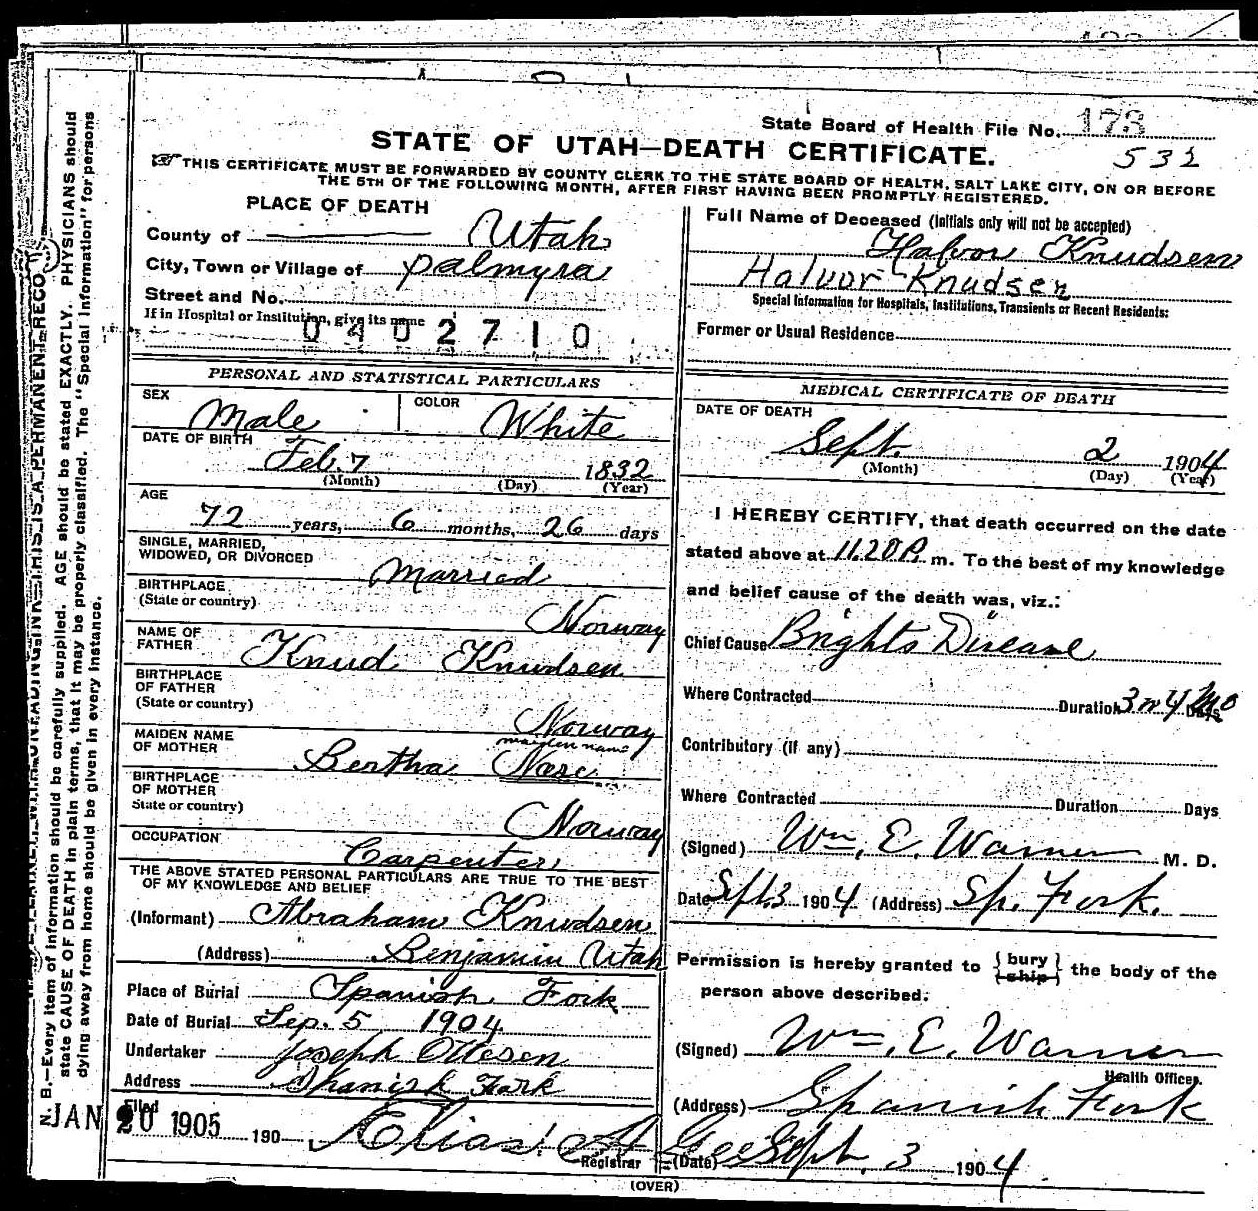 State Board of Health File No. 173
532
STATE OF UTAH—DEATH CERTIFICATE.
☞THIS CERTIFICATE MUST BE FORWARDED BY COUNTY CLERK TO THE STATE BOARD OF HEALTH, SALT LAKE CITY, ON OR BEFORE
THE 5TH OF THE FOLLOWING MONTH, AFTER FIRST HAVING BEEN PROMPTLY REGISTERED.
PLACE OF DEATH
County of Utah
City, Town or Village of Palmyra
Street and No.
If in Hospital or Institution, give its name
0402710
Full Name of Deceased (Initials only will not be accepted)
Halvor Knudsen
Halvor Knudsen
Special Information for Hospitals, Institutions, Transients or Recent Residents:
Former or Usual Residence
PERSONAL AND STATISTICAL PARTICULARS
SEX Male COLOR White
DATE OF BIRTH Feb. 7 1832
(Month) (Day) (Year)
AGE
72 years, 6 months, 26 days
SINGLE, MARRIED,
WIDOWED, OR DIVORCED Married
BIRTHPLACE
(State or country) Norway
NAME OF
FATHER Knud Knudsen
BIRTHPLACE
OF FATHER
(State or country) Norway
MAIDEN NAME
OF MOTHER Bertha
maiden name
BIRTHPLACE
OF MOTHER
State or country) Norway
OCCUPATION Carpenter
THE ABOVE STATED PERSONAL PARTICULARS ARE TRUE TO THE BEST
OF MY KNOWLEDGE AND BELIEF
(Informant) Abraham Knudsen
(Address) Benjamin Utah
Place of Burial Spanish Fork
Date of Burial Sep. 5 1904
Undertaker Joseph Ottesen
Address Spanish Fork
Filed
JAN 20 1905 190
Elias A Gee
Registrar
MEDICAL CERTIFICATE OF DEATH
DATE OF DEATH
Sept. 2 1904
(Month) (Day) (Year)
I HEREBY CERTIFY, that death occurred on the date
stated above at 11.20 P. m. To the best of my knowledge
and belief cause of the death was, viz.:
Chief Cause Brights Disease
Where Contracted Duration 3 or 4 Mo Days
Contributory (if any)
Where Contracted Duration Days
(Signed) Wm. E. Warner M. D.
Date Spt. 3 1904 (Address) Sp. Fork.
Permission is hereby granted to { bury } { ship } the body of the
person above described.
(Signed) Wm. E. Warner
Health Officer.
(Address) Spanish Fork
(Date) Sept. 3 1904
(OVER)
N. B.—Every item of information should be carefully supplied. AGE should be stated EXACTLY. PHYSICIANS should
state CAUSE OF DEATH in plain terms, that it may be properly classified. The "Special Information" for persons
dying away from home should be given in every instance.